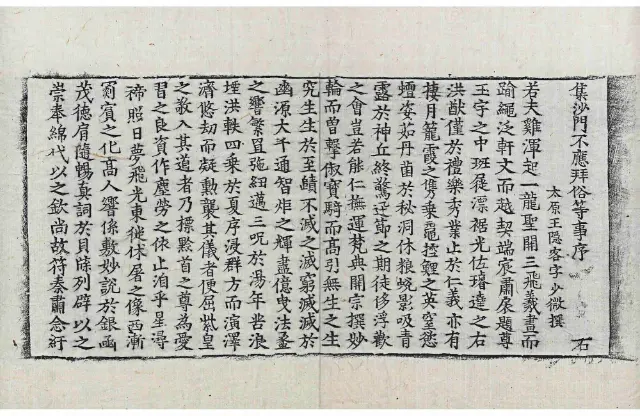 集沙門不應拜俗等事序
太原王隱客字少微撰 右
若夫雞渾起一龍聖開三飛羲畫而
踰繩泛軒文而越契端扆肅扆題尊
玉宇之中班屣漂裾光佐璿逵之右
洪猷僅於禮樂秀業止於仁義亦有
棲月籠霞之雋乘龍控鯉之英窒慾
姿茹丹菌於秘洞休粮蛻影吸青
露於神丘終驚逆節之期徒侈浮歡
之會豈若能仁撫運梵典開宗撰妙
輪而曾擊俶寶騎而高引無生之生
究生生於至賾不滅之滅窮滅滅於
幽源大千通智炬之輝盡億曳法螽
之響繁罝弛紐邁三呪於湯年沓浪
堙洪軼四乘於夏序浸群方而演澤
濟悠劫而疑勳襲其儀者便屈紫皇
之敬入其道者乃摽黔首之尊為愛
習之良資作塵勞之依止洎乎星
照日夢飛光東徙休屠之像西漸
罽賓之化高人響係敷妙說於銀函
茂德肩隨暢真詞於貝牒列辟以之
崇奉綿代以之欽尚故符秦肅念紆